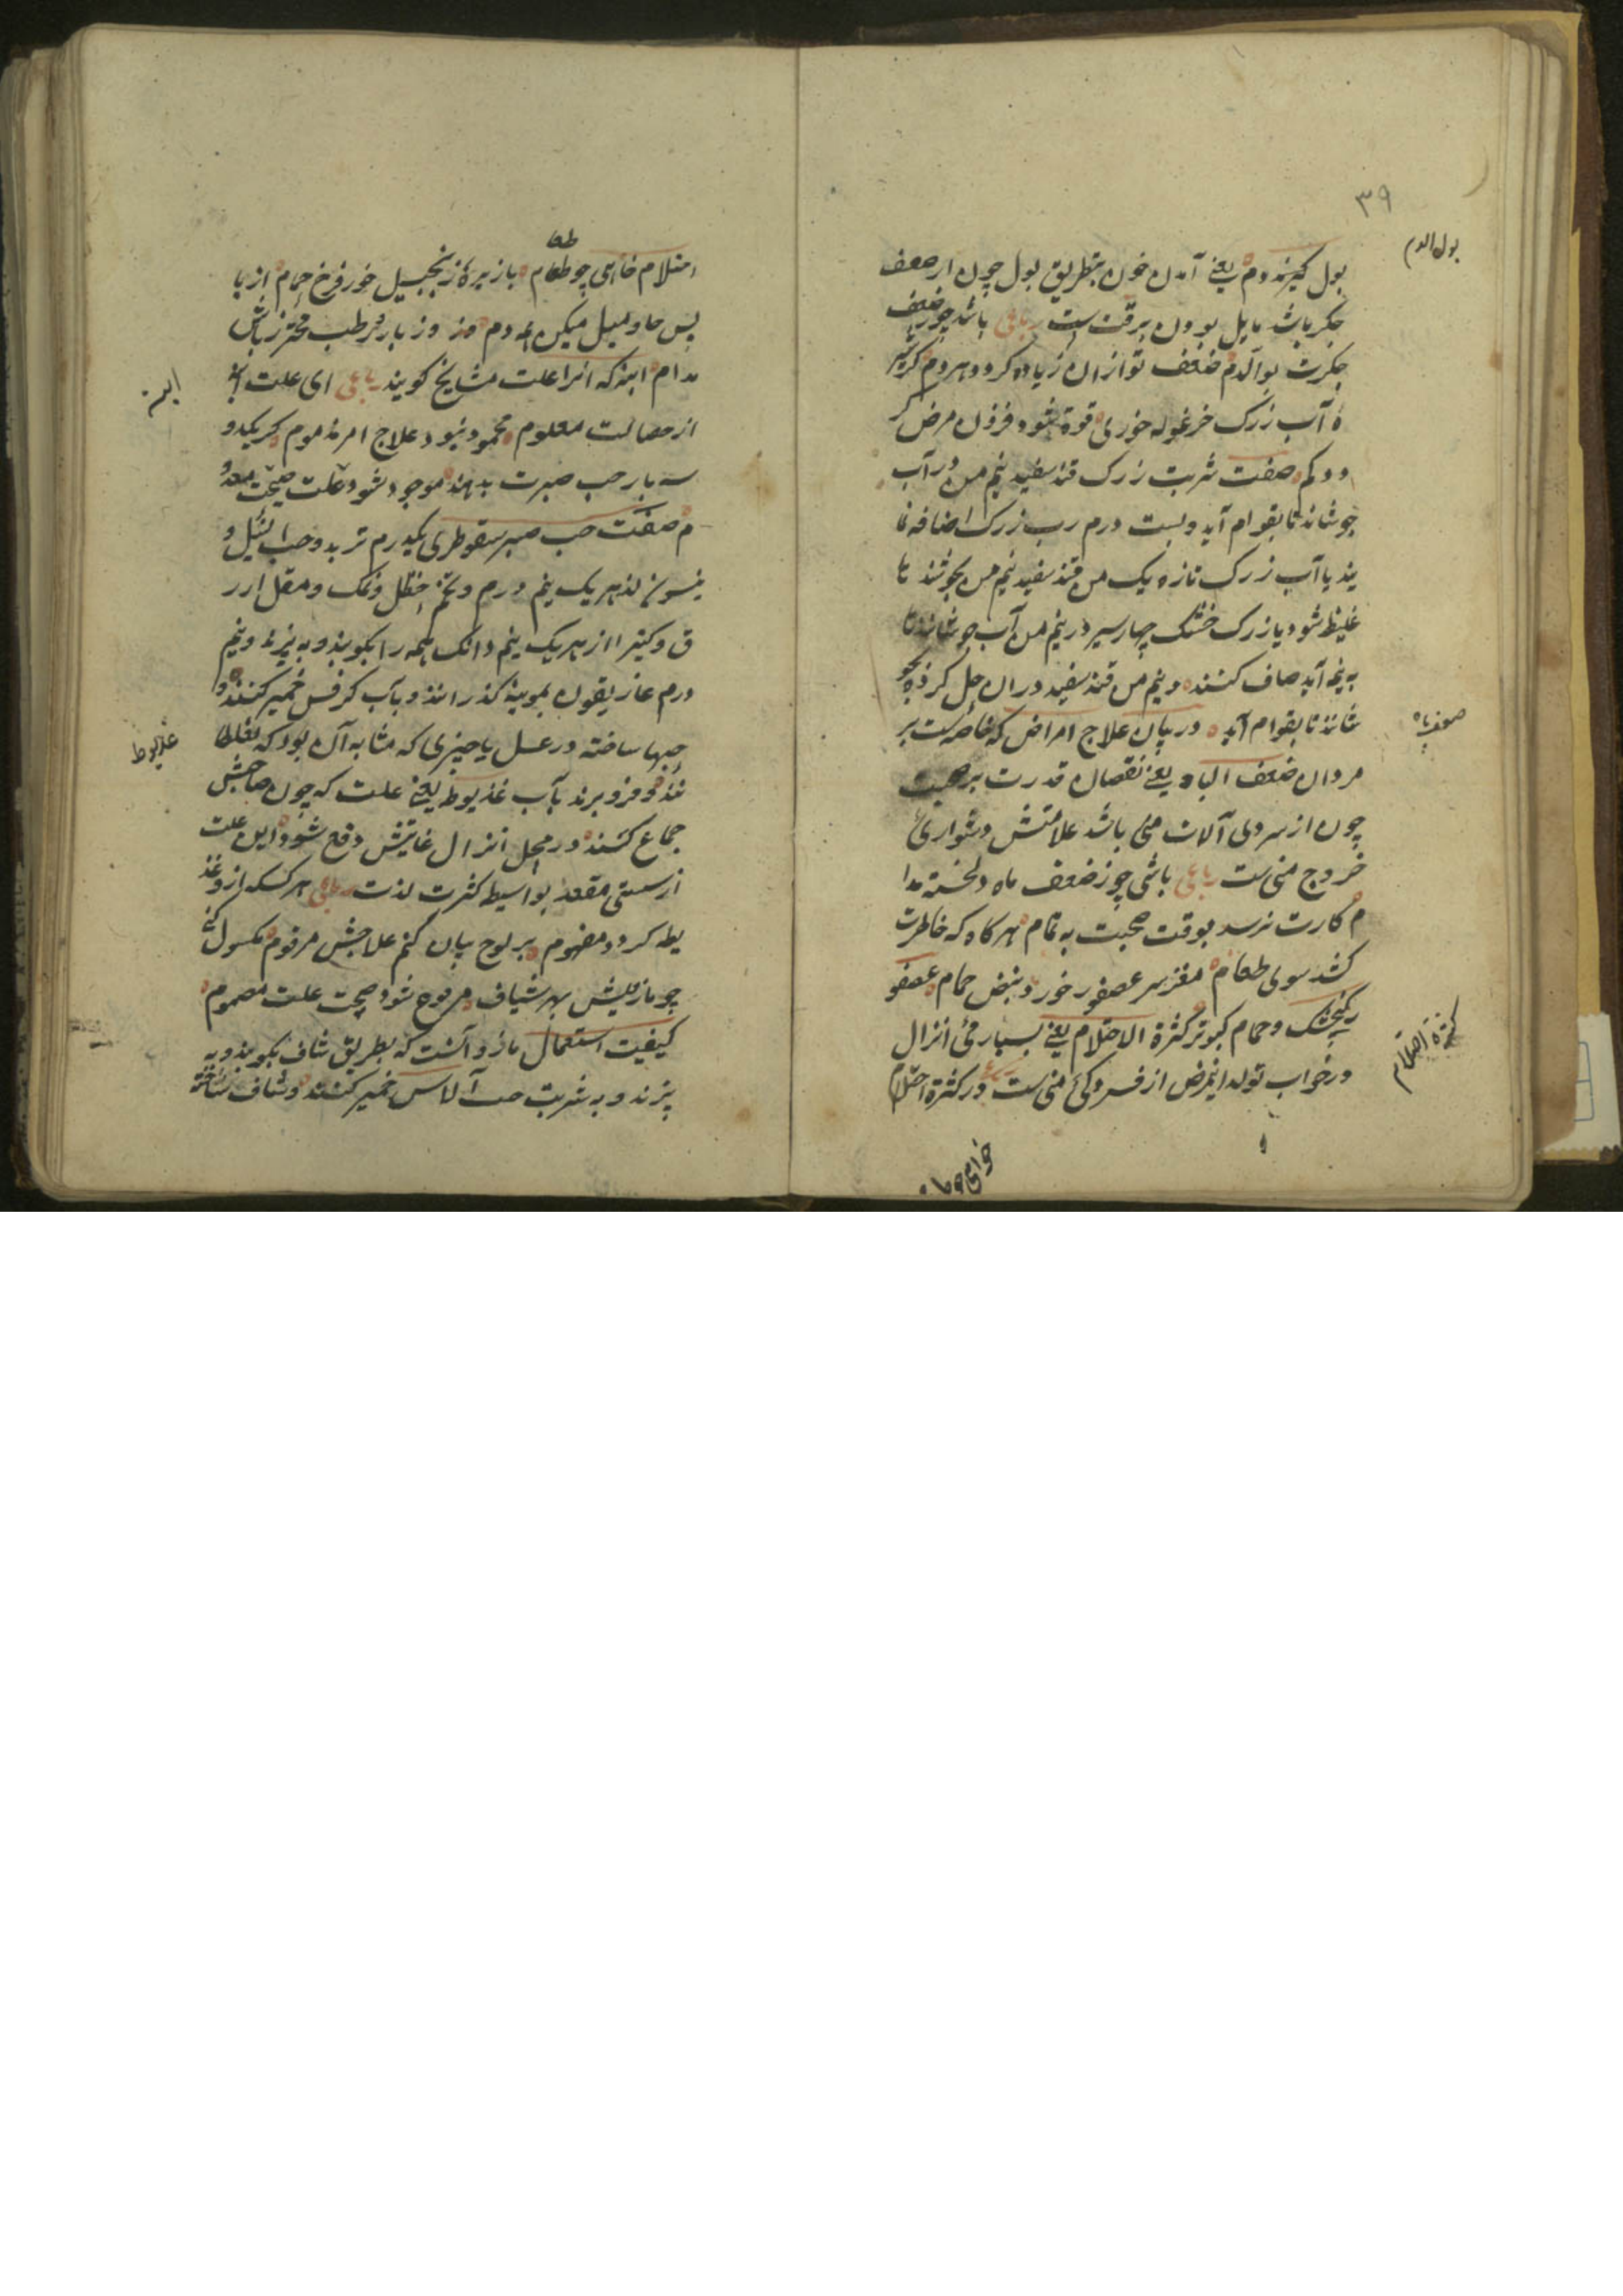 ۳۹
بول الدم
بول گیرند دم یعنی آمدن خون بطریق بول چون از ضعف
جگر باشد مایل بودن برقت است رباعی باشد چو ز ضعف
جگرت بول الدم ضعف تو ازان زیاده گردد هر دم گر شیر
ه آب زرک خرغوله خوری قوة شود فزون مرض گر
دد کم صفت شربت زرک قند سفید نیم من در آب
جوشاند تا بقوام آید و بست درم رب زرک اضافه نما
یند یا آب زرک تازه یک من قند سفید نیم من بجوشند تا
غلیظ شود یا زرک خشک چهار سیر در نیم من آب جوشانند تا
به نیمه آید صاف کنند و نیم من قند سفید دران حل کرده بجو
شانند تا بقوام آید در بیان علاج امراض که خاصه است بر
ضعف باه
مردان ضعف الباه یعنی نقصان قدرت بر صحبت
چون از سردی آلات منی باشد علامتش دشواری
خروج منی است رباعی باشی چو ز ضعف باه دلخسته مدا
م کارت نرسد بوقت صحبت به تمام هر گاه که خاطرت
کشد سوی طعام مغز سر عصفور خور و بیض حمام عصفو
ر گنجشک و حمام کبوتر کثرة الاحتلام یعنی بسیارئی انزال
کثرة احتلام
در خواب تولد اینمرض از فسردگی منی است در کثرة احتلام
خواهی چو طـ
طعا
احتلام خواهی چو طعام با زیره و زنجبیل خور فرخ حمام از یا
بس حاد میل میکن همه دم وز بارد رطب محترز باش
مدام ابنه که آنرا علت مشایخ گویند رباعی ای علت ابنه
ابنه
از خصالت معلوم محمود نبود علاج امر مذموم گر یکدو
سه بار حب صبرت بدهند موجود شود علت صحت معدو
م صفت حب صبر سقوطری یکدرم تربد و حب النیل و
نیسون از هر یک نیم درم و تخم حنظل و نمک و مقل ازر
ق و کتیرا از هر یک نیم دانک همه را بکوبند و به بیزند و نیم
درم غاریقون بموینه گذرانند و بآب کرفس خمیر کنند و
حبها ساخته در عسل یا چیزی که مشابه آن بود که بغلطا
نند و فرو برند بآب غذیوط یعنی علت که چون صاحبش
غذیوط
جماع کند در محل انزال غایتش دفع شود این علت
از سستی مقعد بواسطه کثرت لذت رباعی هر کسکه ازو غذ
یطه گردد مفهوم بر لوح بیان کنم علاجش مرقوم مکسول کنی
چو مازویش بهر شیاف مرفوع شود صحت علت مصموم
کیفیت استعمال مازو آنست که بطریق شاف بکوبند و به
بیزند و به شربت حب آلاس خمیر کنند و شاف ساخته